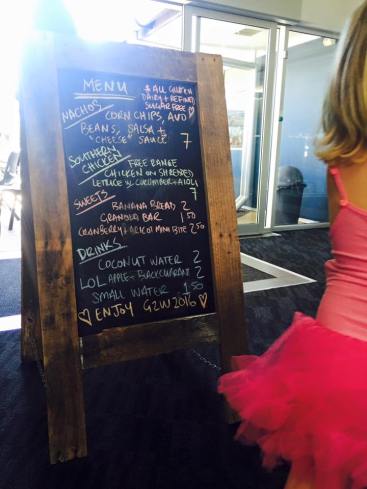 MENU
* ALL GLUTEN
DAIRY + REFINED
SUGAR FREE ♡
NACHOS
CORN CHIPS, AVO
BEANS, SALSA +
"CHEESE" SAUCE 7
SOUTHERN
CHICKEN
FREE RANGE
CHICKEN ON SHREDED
LETTUCE W. CUCUMBER + AIOLI
7
SWEETS
BANANA BREAD 2
GRANOLA BAR 1.50
CRANBERRY + APRICOT MINI BITE 2.50
DRINKS
COCONUT WATER 2
LOL APPLE + BLACKCURRANT 2
SMALL WATER 1.50
♡ ENJOY G2W2016 ♡